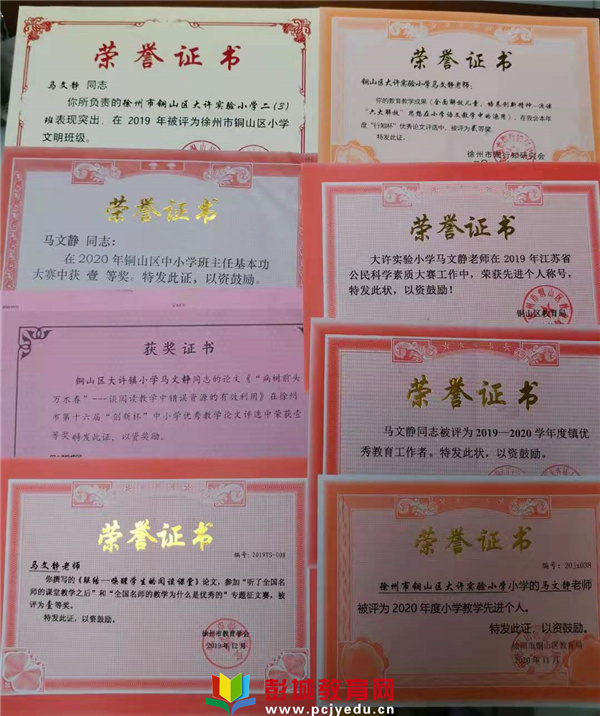 荣誉证书
马文静 同志
你所负责的徐州市铜山区大许实验小学二(3)
班表现突出，在 2019 年被评为徐州市铜山区小学
文明班级。
荣誉证书
铜山区大许实验小学马文静老师：
你的教育教学成果《全面解放儿童，培养创新精神--浅谈
“六大解放”思想在小学语文教学中的运用》，在我会本年
度“行知杯”优秀论文评选中，被评为贰等奖。
特发此证。
徐州市陶行知研究会
荣誉证书
马文静 同志：
在 2020 年铜山区中小学班主任基本功
大赛中获 壹 等奖。特发此证，以资鼓励。
荣誉证书
大许实验小学马文静老师在 2019 年江苏省
公民科学素质大赛工作中，荣获先进个人称号，
特发此状，以资鼓励！
铜山区教育局
获奖证书
铜山区大许镇小学马文静同志的论文《“病树前头
万木春”---谈阅读教学中错误资源的有效利用》在徐州
市第十六届“创新杯”中小学优秀教学论文评选中荣获壹
等奖 特发此证，以资奖励。
荣誉证书
马文静同志被评为 2019—2020 学年度镇优
秀教育工作者。特发此状，以资鼓励。
荣誉证书
编号：2019TS-008
马文静老师
你撰写的《联结--唤醒学生的阅读课堂》论文，参加“听了全国名
师的课堂教学之后”和“全国名师的教学为什么是优秀的”专题征文赛，被
评为壹等奖。
特发此证，以资鼓励。
徐州市教育学会
2019年12月
荣誉证书
编号：20jx038
徐州市铜山区大许实验小学小学的马文静老师
被评为 2020 年度小学教学先进个人。
特发此证，以资鼓励。
徐州市铜山区教育局
2020 年 11 月
彭城教育网
www.pcjyedu.cn